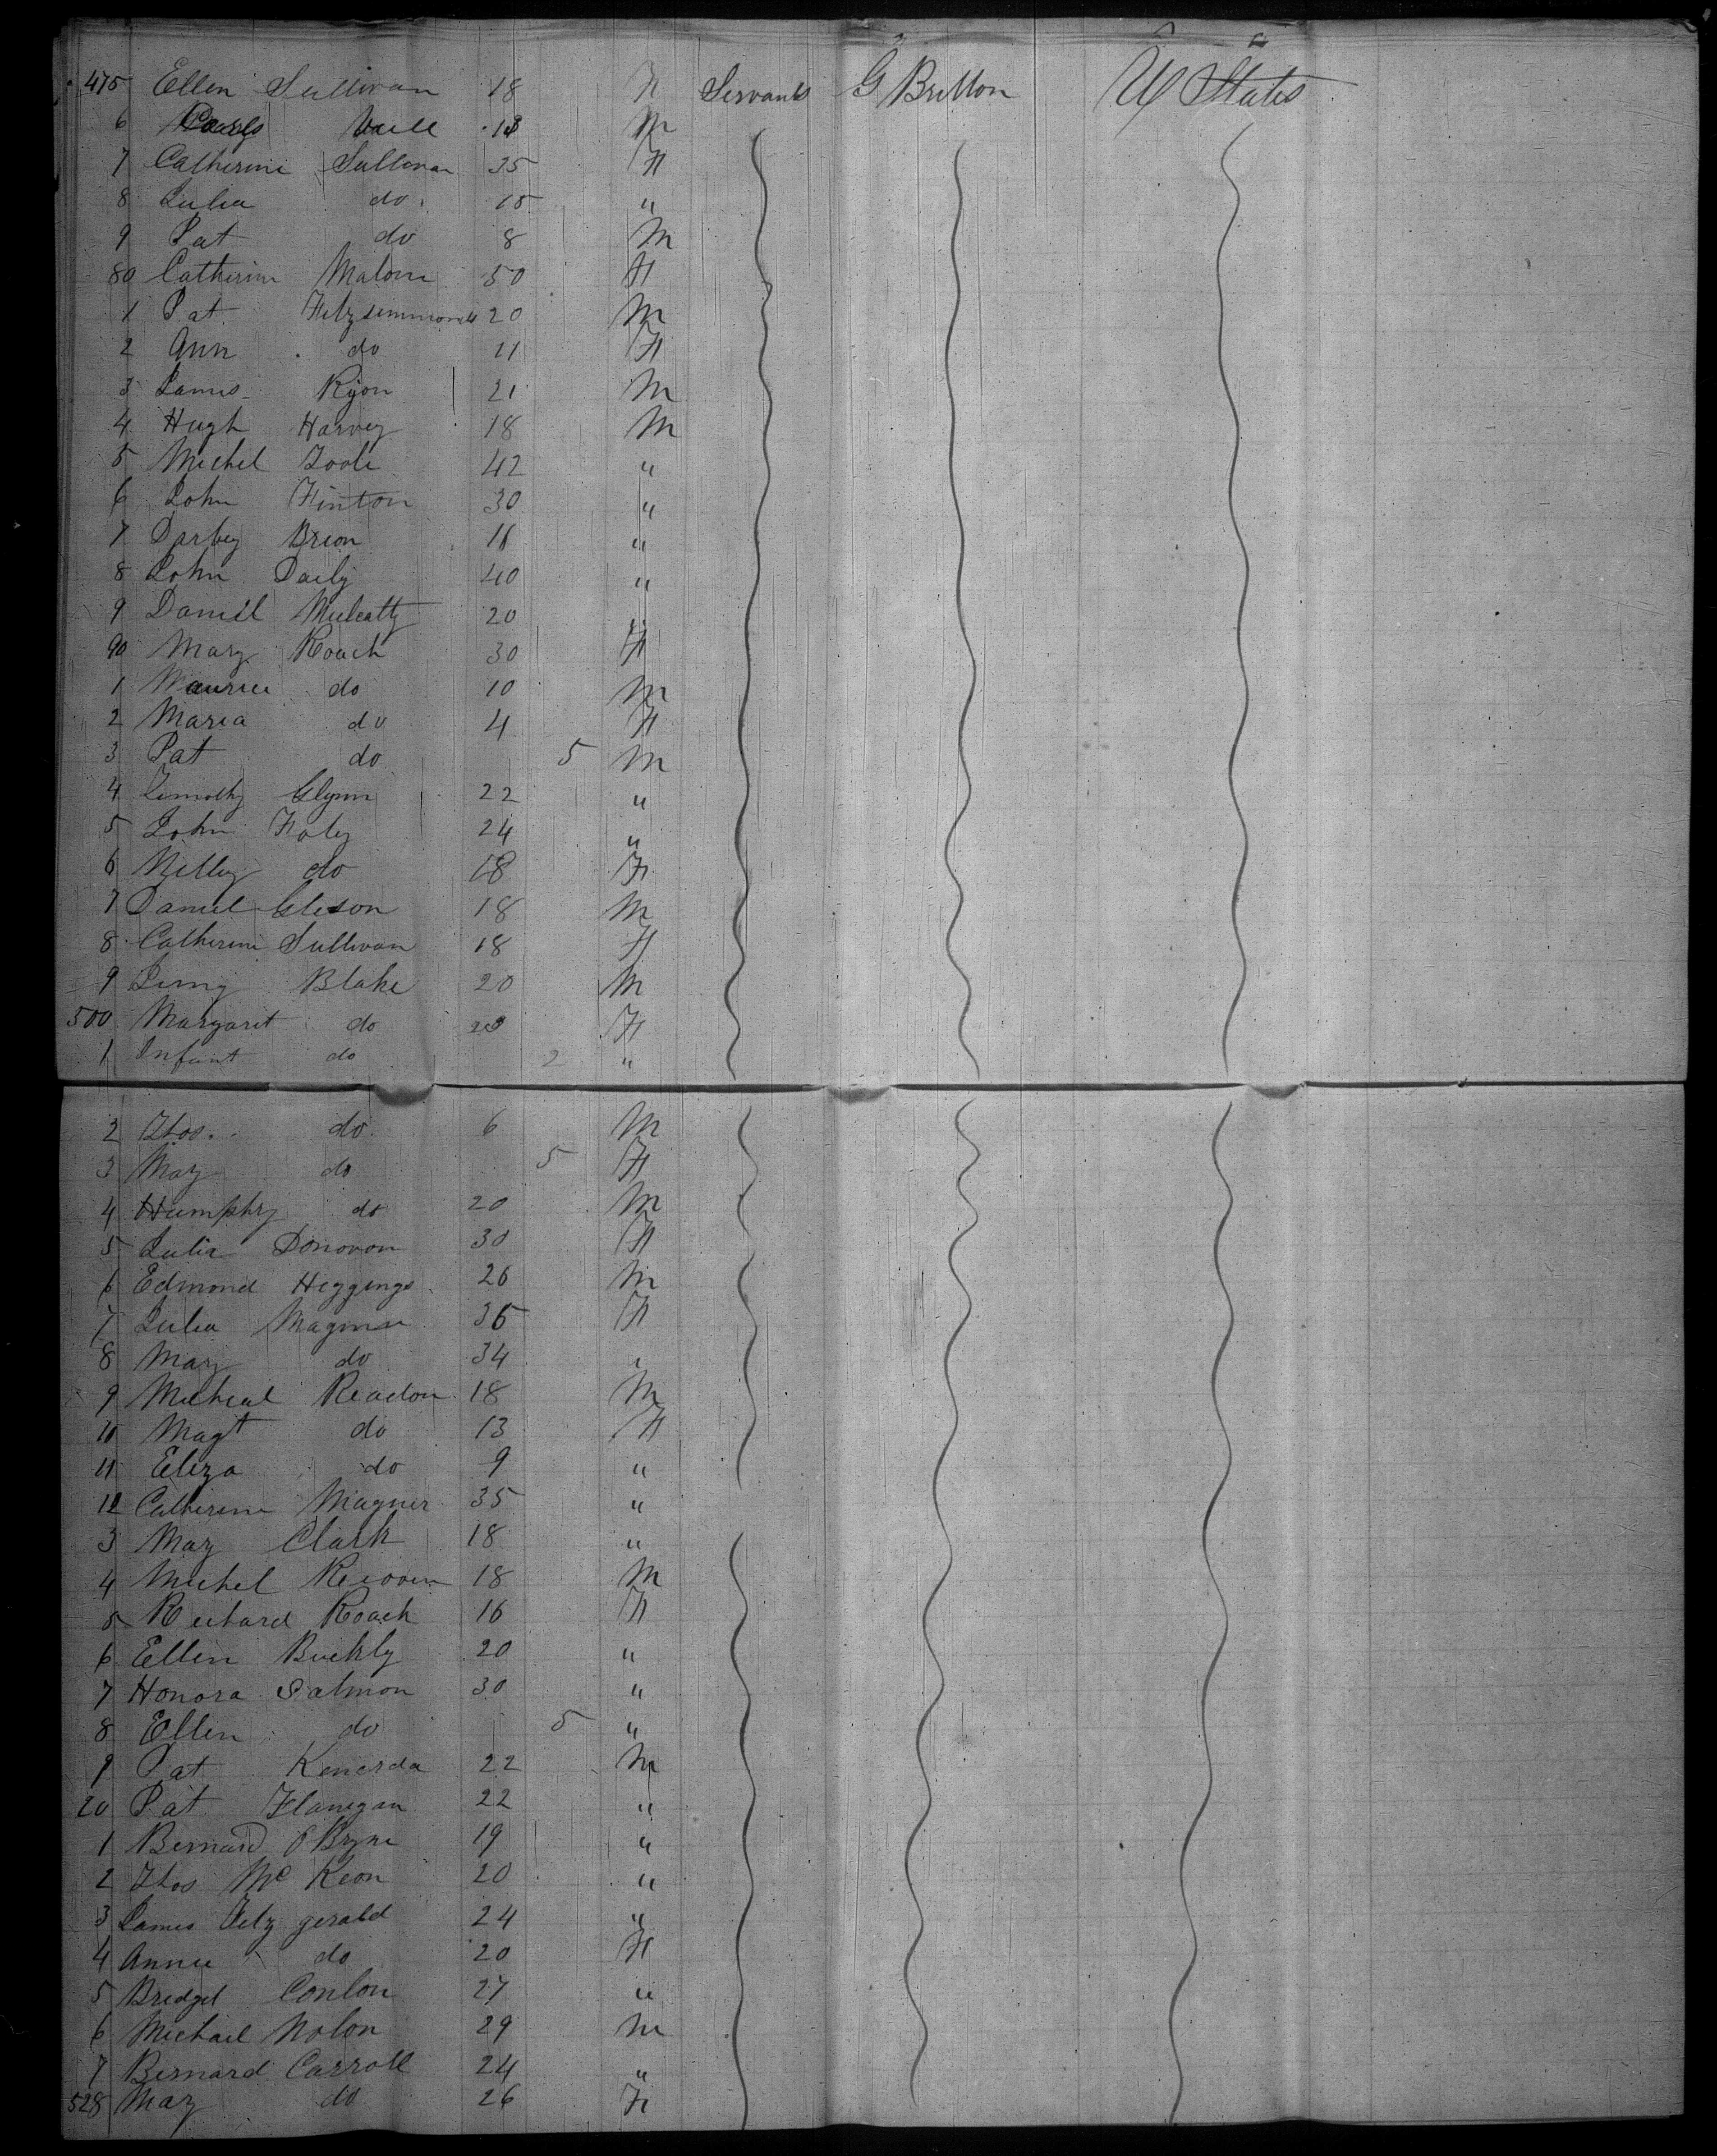 475 Ellen Sullivan 18 F Servants G Britton U States
6 18 M
7 Catherine Sullivan 35 F
8 Julia do 15 "
9 Pat do 8 M
80 Catherine Malone 50 F
1 Pat Fitzsimmonds 20 M
2 Ann do 21 F
3 James Ryon 21 M
4 Hugh Harvey 18 M
5 Michel Toole 42 "
6 John Finton 30 "
7 Darbey Brion "
8 John Daily 40 "
9 Daniel Mulcatty 20 "
90 Mary Roach 30 F
1 Maurice do 10 M
2 Maria do 4 F
3 Pat do 5 M
4 Timothy Glynn 22 "
5 John Foley 24 "
6 Nelley do 18 F
7 Daniel Gleson 18 M
8 Catherine Sullivan 18 F
9 Blake 20 M
500 Margaret do 20 F
1 Infant do 2 "
2 Thos. do 6 M
3 May do 5 F
4 Humphry do 20 M
5 Julia Donovon 30 F
6 Edmond Heggings 26 M
7 Julia Magner 35 F
8 May do 34 "
9 Micheal Readon 18 M
10 Magt do 13 F
11 Eliza do 9 "
12 Catherine Magner 35 "
3 May Clark 18 "
4 Michel 18 M
5 Richard Roach 16 F
6 Ellen Buckly 20 "
7 Honora Salmon 30 "
8 Ellen do 5 "
9 Pat Kenerda 22 M
20 Pat Flanegan 22 "
1 Bernard O Bryne 19 "
2 Thos Mc Keon 20 "
3 James Fitz gerald 24 "
4 Annie do 20 F
5 Bredget Conlon 27 "
6 Michael Nolon 29 M
7 Bernard Carroll 24 "
528 May do 26 F